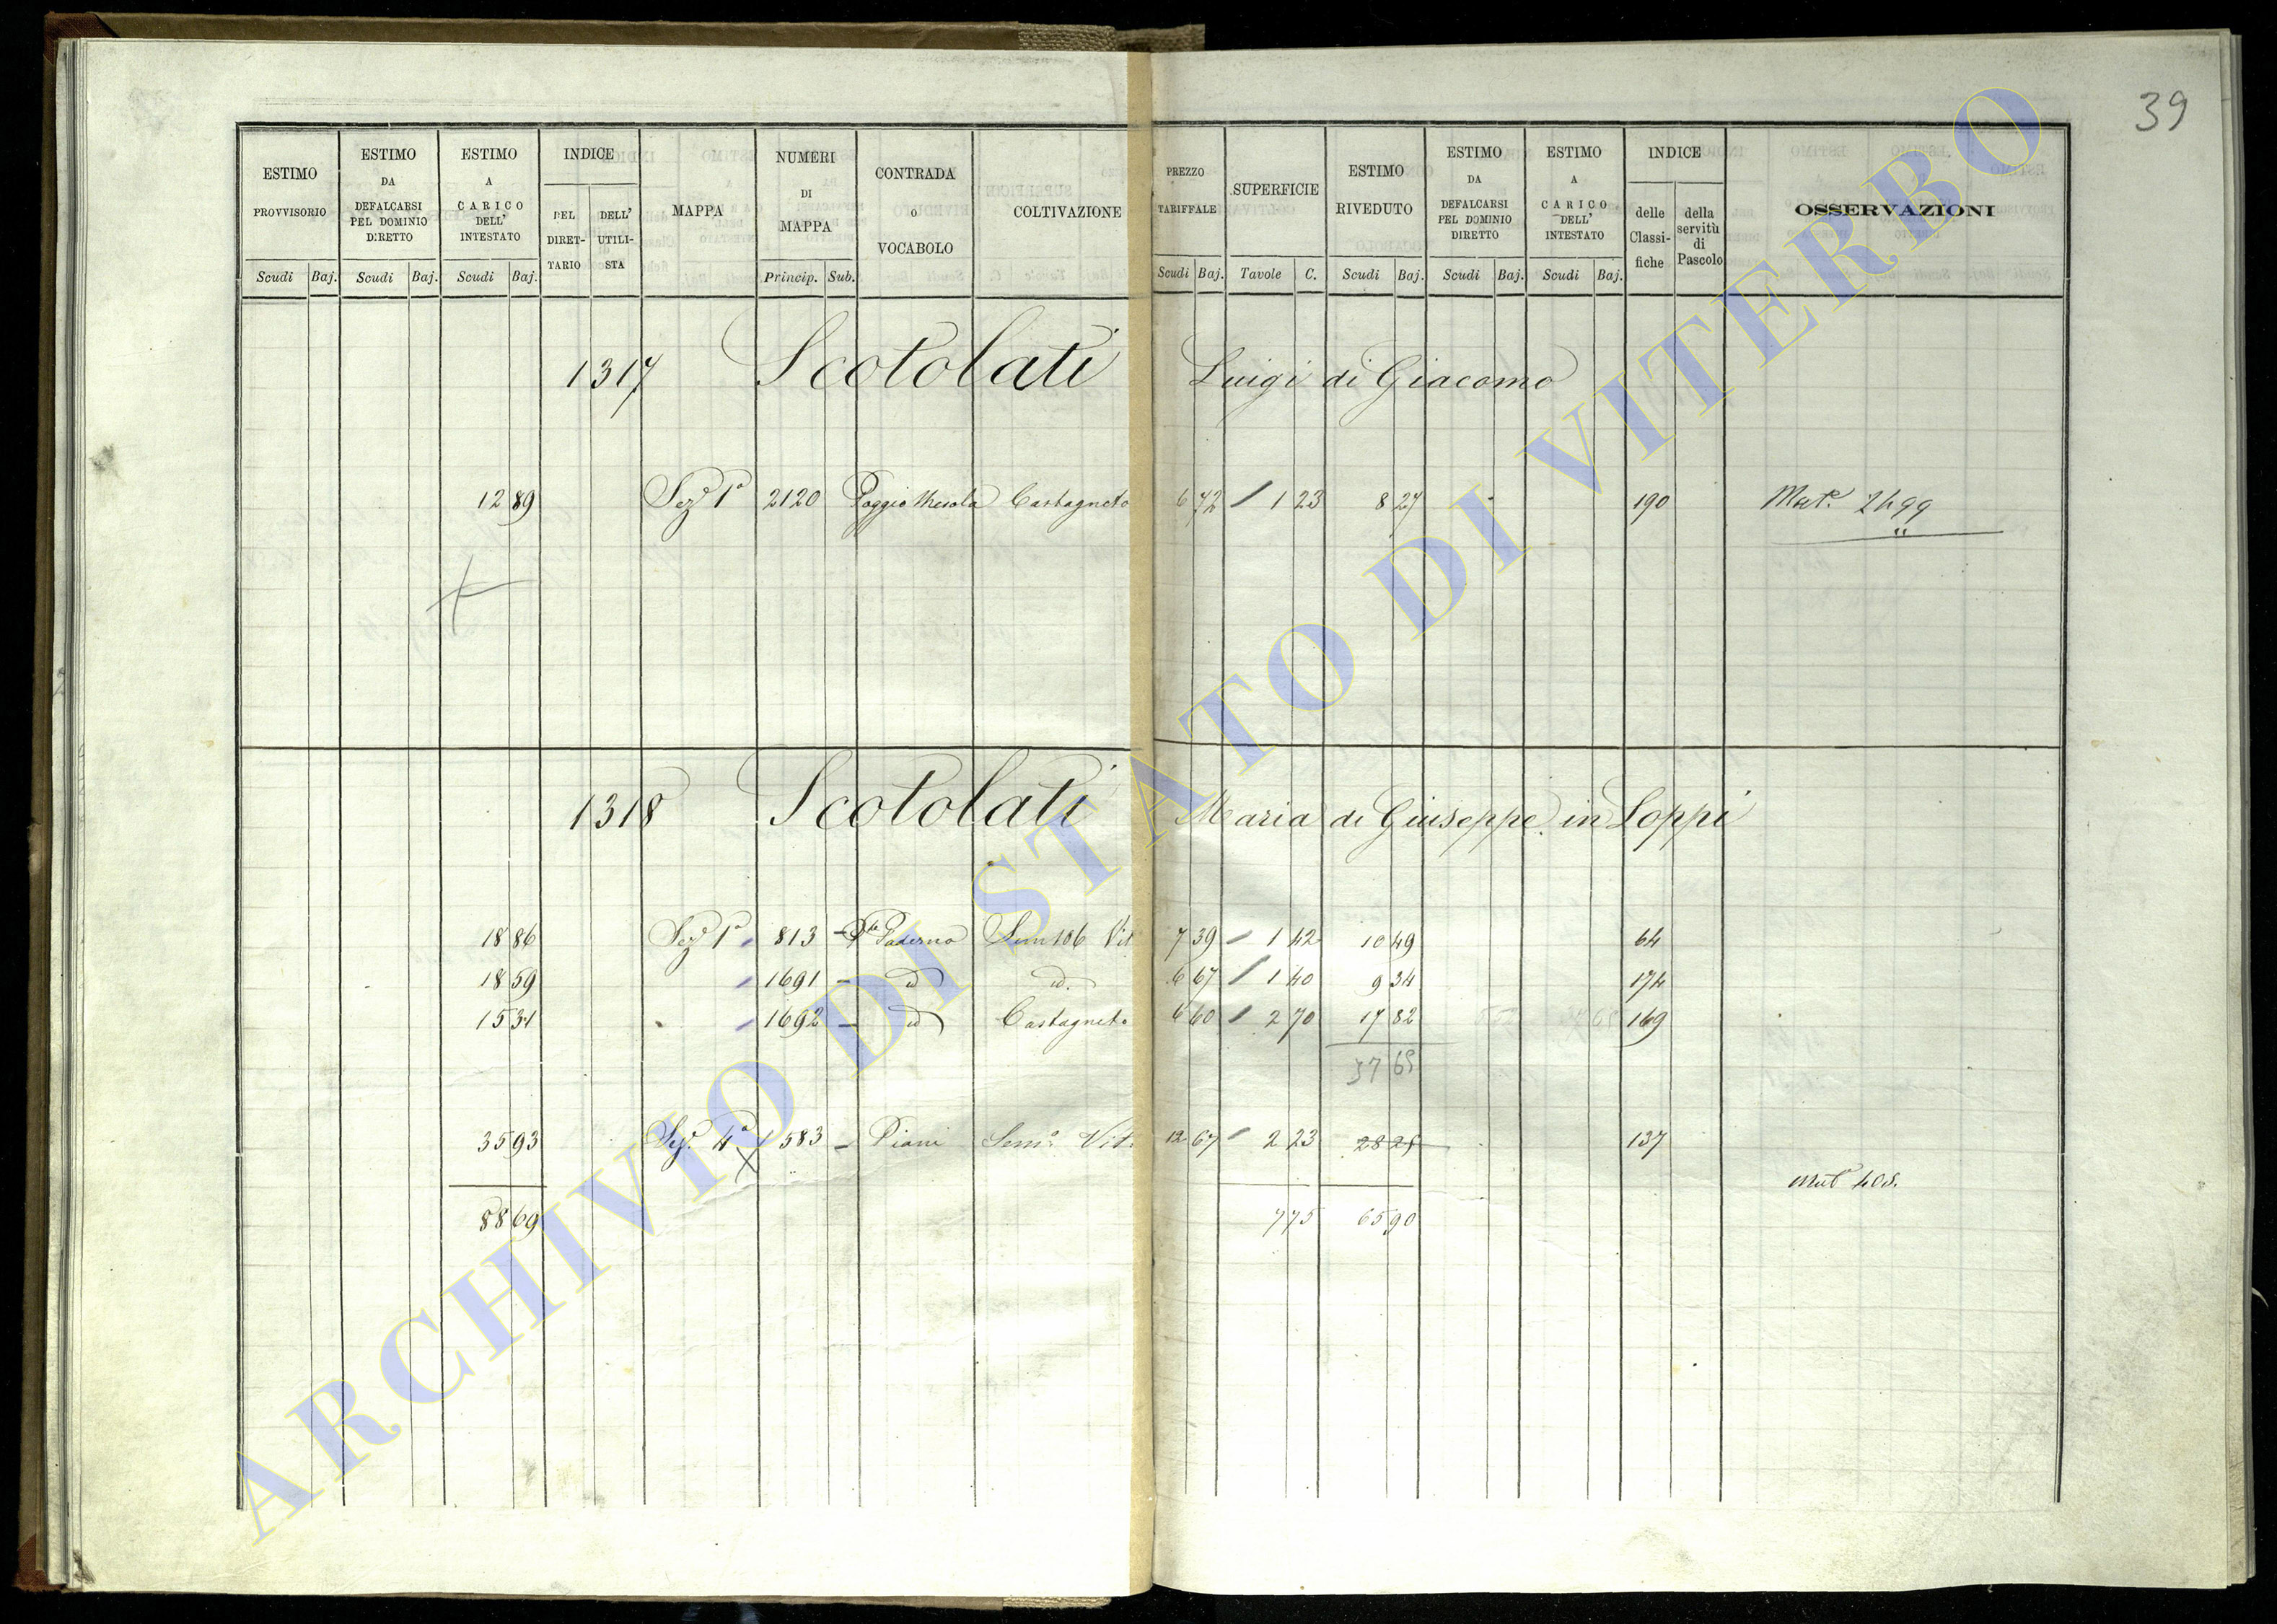 39
ESTIMO PROVVISORIO Scudi Baj.
ESTIMO DA DEFALCARSI PEL DOMINIO DIRETTO Scudi Baj.
ESTIMO A CARICO DELL' INTESTATO Scudi Baj.
INDICE DEL DIRET-TARIO DELL' UTILI-STA
MAPPA
NUMERI DI MAPPA Princip. Sub.
CONTRADA O VOCABOLO
COLTIVAZIONE
PREZZO TARIFFALE Scudi Baj.
SUPERFICIE Tavole C.
ESTIMO RIVEDUTO Scudi Baj.
ESTIMO DA DEFALCARSI PEL DOMINIO DIRETTO Scudi Baj.
ESTIMO A CARICO DELL' INTESTATO Scudi Baj.
INDICE delle Classi-fiche della servitù di Pascolo
OSSERVAZIONI
1317 Scotolati Luigi di Giacomo
12 89 Sez.e 1a 2120 Poggio Mesola Castagneto 6 72 1 23 8 27 190 Mut.e 2499
1318 Scotolati Maria di Giuseppe in Loppi
18 86 Sez.e 1a 813 Paderno Vit 7 39 1 42 10 49 64
18 59 1691 id id. 6 67 1 40 9 34 174
15 31 1692 id Castagneto 6 60 2 70 17 82 169
37 65
35 93 Sez.e 4a 583 Piani Sem.o Vit. 12 67 2 23 28 25 137
Mut.e 408.
88 69 7 75 65 90
ARCHIVIO DI STATO DI VITERBO